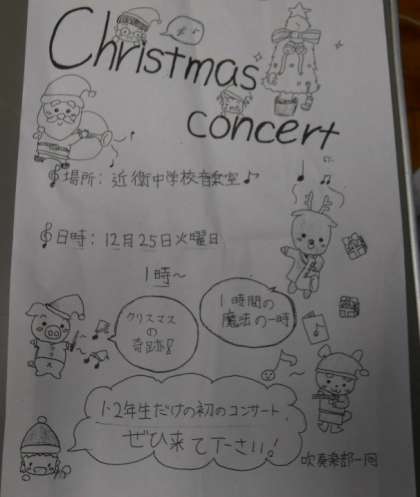 Christmas
concert
場所：近衛中学校音楽室
日時：12月25日火曜日
1時～
1時間の
魔法の一時
クリスマス
の
奇跡!!
1・2年生だけの初のコンサート
ぜひ来て下さい!
吹奏楽部一同